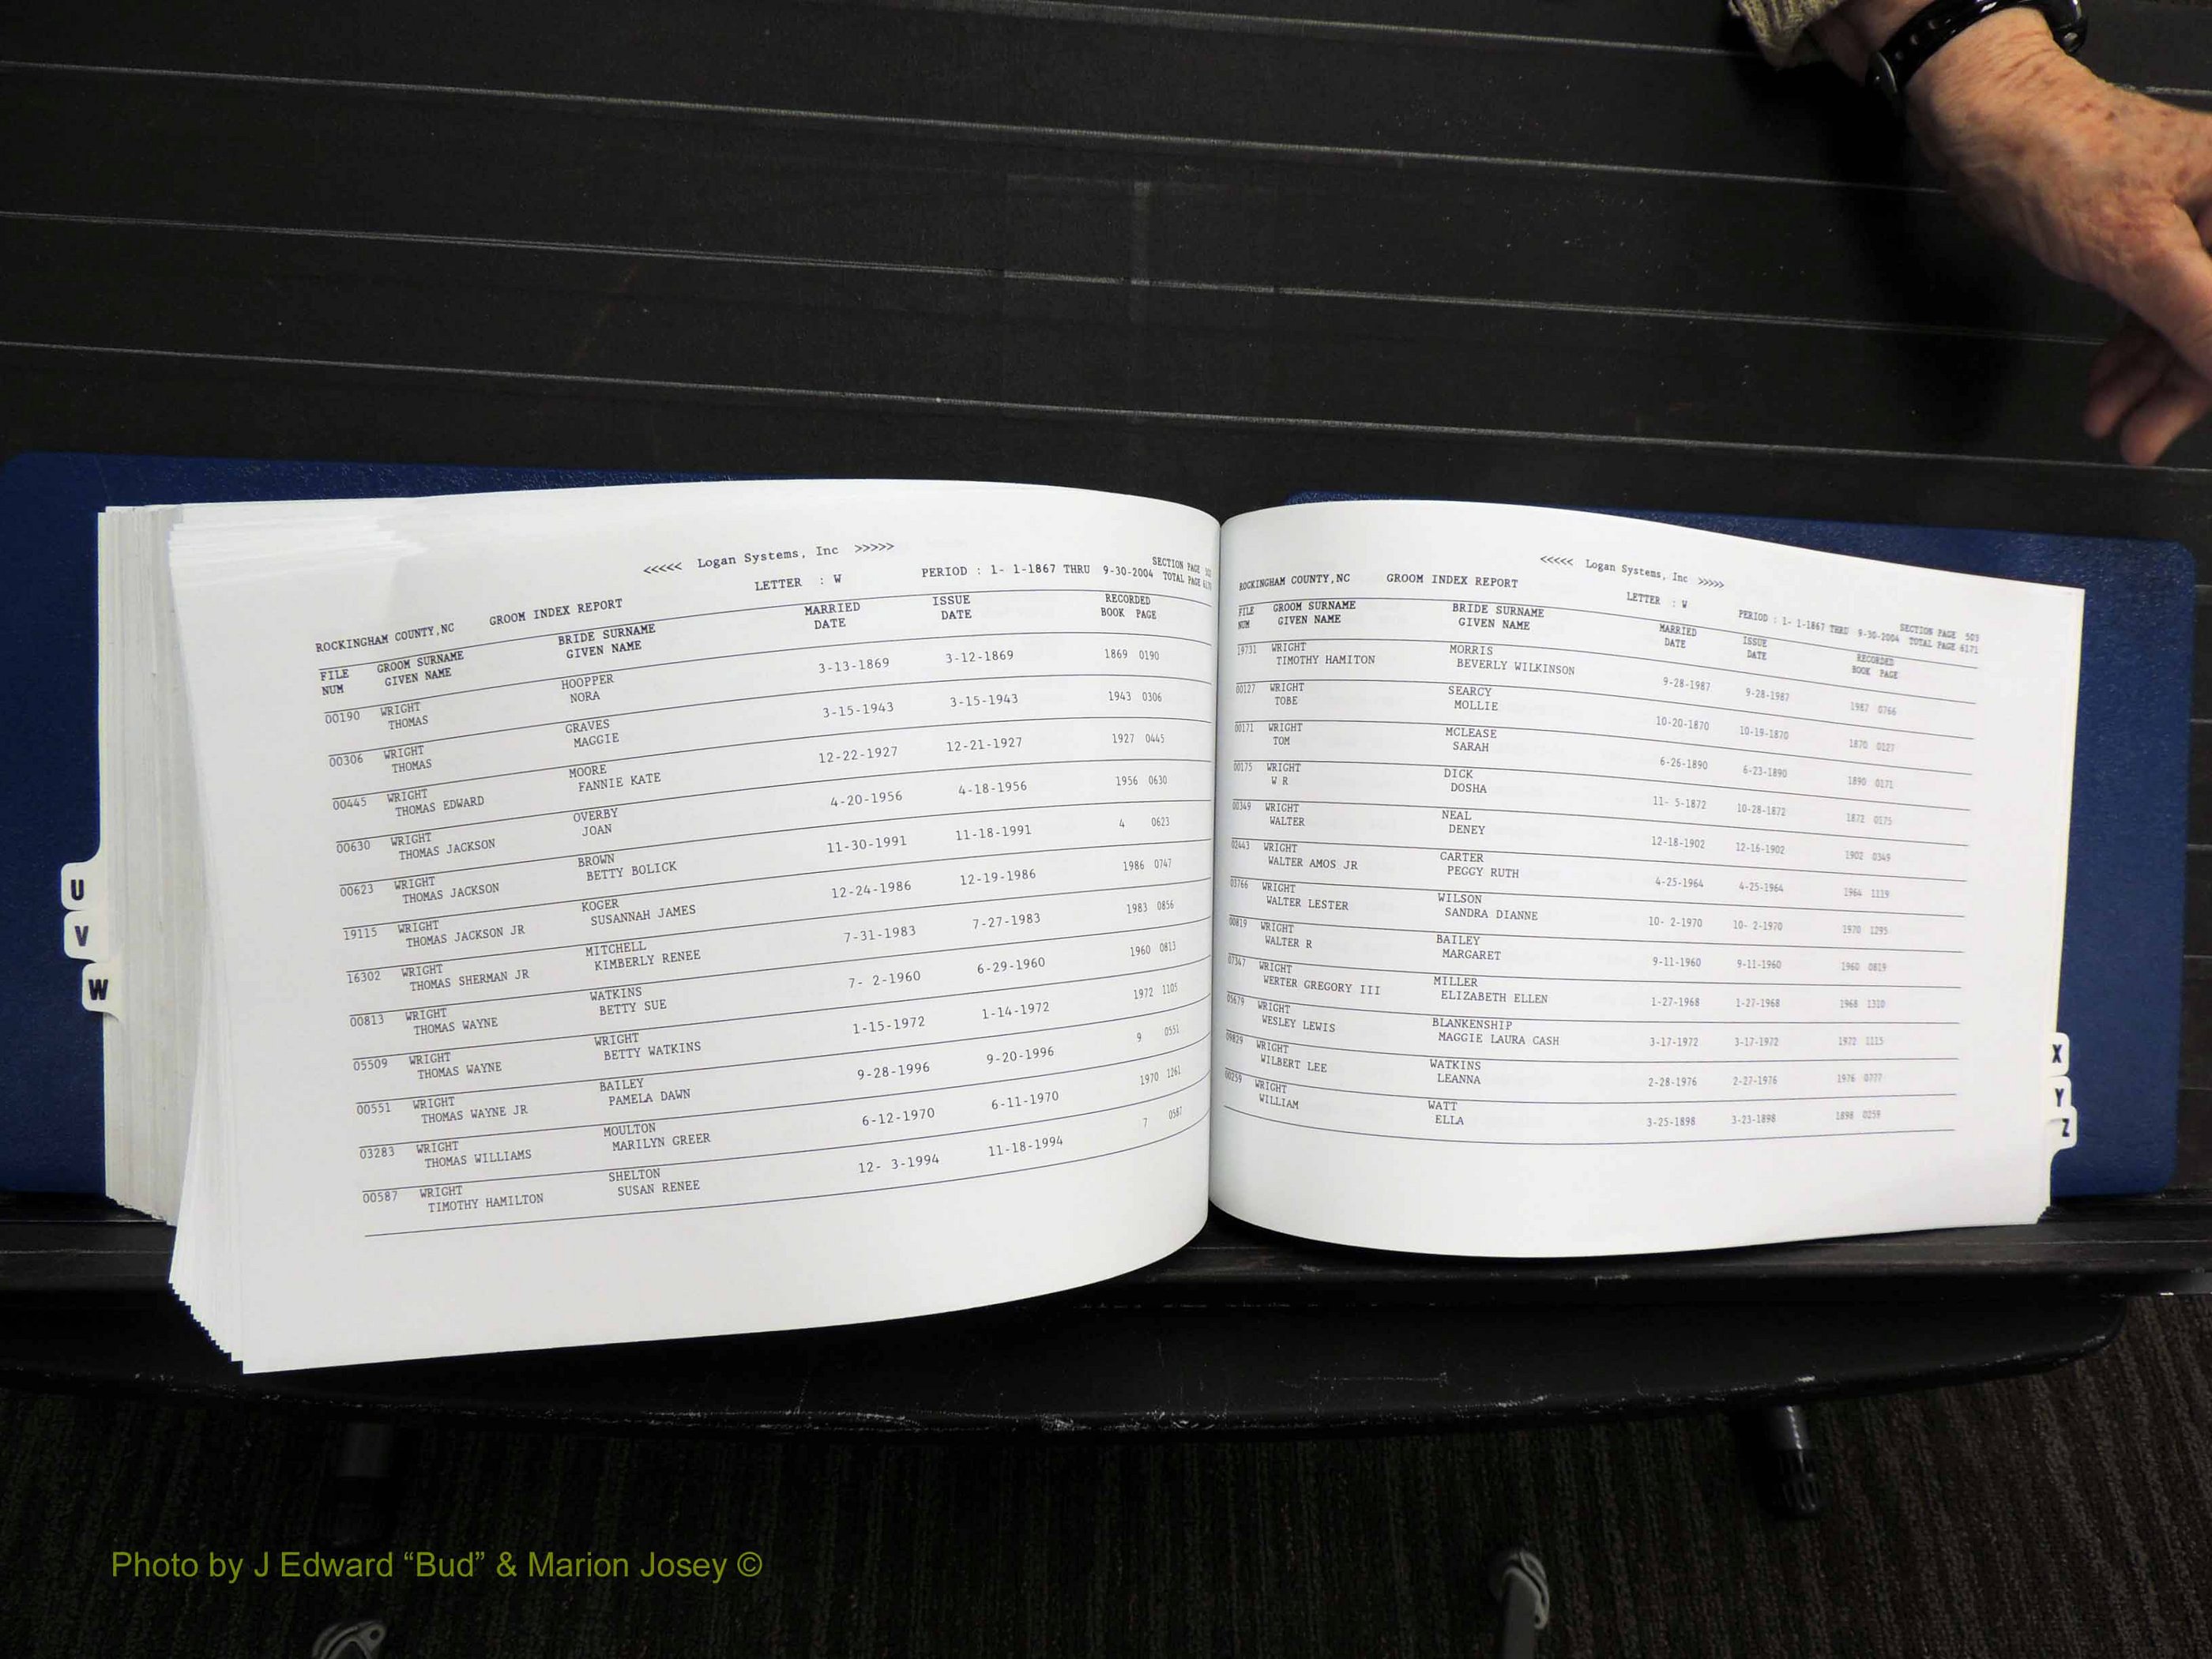 <<<<< Logan Systems, Inc >>>>>
ROCKINGHAM COUNTY,NC GROOM INDEX REPORT LETTER : W PERIOD : 1- 1-1867 THRU 9-30-2004 SECTION PAGE
TOTAL PAGE
FILE GROOM SURNAME BRIDE SURNAME MARRIED ISSUE RECORDED
NUM GIVEN NAME GIVEN NAME DATE DATE BOOK PAGE
00190 WRIGHT HOOPPER 3-13-1869 3-12-1869 1869 0190
THOMAS NORA
00306 WRIGHT GRAVES 3-15-1943 3-15-1943 1943 0306
THOMAS MAGGIE
00445 WRIGHT MOORE 12-22-1927 12-21-1927 1927 0445
THOMAS EDWARD FANNIE KATE
00630 WRIGHT OVERBY 4-20-1956 4-18-1956 1956 0630
THOMAS JACKSON JOAN
00623 WRIGHT BROWN 11-30-1991 11-18-1991 4 0623
THOMAS JACKSON BETTY BOLICK
19115 WRIGHT KOGER 12-24-1986 12-19-1986 1986 0747
THOMAS JACKSON JR SUSANNAH JAMES
16302 WRIGHT MITCHELL 7-31-1983 7-27-1983 1983 0856
THOMAS SHERMAN JR KIMBERLY RENEE
00813 WRIGHT WATKINS 7- 2-1960 6-29-1960 1960 0813
THOMAS WAYNE BETTY SUE
05509 WRIGHT WRIGHT 1-15-1972 1-14-1972 1972 1105
THOMAS WAYNE BETTY WATKINS
00551 WRIGHT BAILEY 9-28-1996 9-20-1996 9 0551
THOMAS WAYNE JR PAMELA DAWN
03283 WRIGHT MOULTON 6-12-1970 6-11-1970 1970 1261
THOMAS WILLIAMS MARILYN GREER
00587 WRIGHT SHELTON 12- 3-1994 11-18-1994 7 0587
TIMOTHY HAMILTON SUSAN RENEE
U
V
W
<<<<< Logan Systems, Inc >>>>>
ROCKINGHAM COUNTY,NC GROOM INDEX REPORT LETTER : W PERIOD : 1- 1-1867 THRU 9-30-2004 SECTION PAGE 503
TOTAL PAGE 6171
FILE GROOM SURNAME BRIDE SURNAME MARRIED ISSUE RECORDED
NUM GIVEN NAME GIVEN NAME DATE DATE BOOK PAGE
19731 WRIGHT MORRIS 9-28-1987 9-28-1987 1987 0766
TIMOTHY HAMITON BEVERLY WILKINSON
00127 WRIGHT SEARCY 10-20-1870 10-19-1870 1870 0127
TOBE MOLLIE
00171 WRIGHT MCLEASE 6-26-1890 6-23-1890 1890 0171
TOM SARAH
00175 WRIGHT DICK 11- 5-1872 10-28-1872 1872 0175
W R DOSHA
00349 WRIGHT NEAL 12-18-1902 12-16-1902 1902 0349
WALTER DENEY
02443 WRIGHT CARTER 4-25-1964 4-25-1964 1964 1119
WALTER AMOS JR PEGGY RUTH
03766 WRIGHT WILSON 10- 2-1970 10- 2-1970 1970 1295
WALTER LESTER SANDRA DIANNE
00819 WRIGHT BAILEY 9-11-1960 9-11-1960 1960 0819
WALTER R MARGARET
07347 WRIGHT MILLER 1-27-1968 1-27-1968 1968 1310
WERTER GREGORY III ELIZABETH ELLEN
05679 WRIGHT BLANKENSHIP 3-17-1972 3-17-1972 1972 1115
WESLEY LEWIS MAGGIE LAURA CASH
09829 WRIGHT WATKINS 2-28-1976 2-27-1976 1976 0777
WILBERT LEE LEANNA
00259 WRIGHT WATT 3-25-1898 3-23-1898 1898 0259
WILLIAM ELLA
X
Y
Z
Photo by J Edward “Bud” & Marion Josey ©